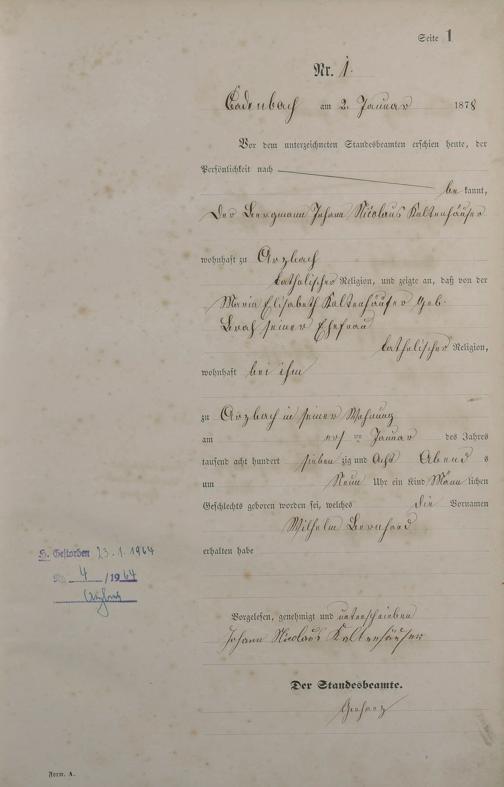 Seite 1
Nr. 1.
Cadenbach am 2. Januar 1878
Vor dem unterzeichneten Standesbeamten erschien heute, der
Persönlichkeit nach
be kannt,
Der Bergmann Johann Nicolaus Kaltenhäuser
wohnhaft zu Arzbach
katholischer Religion, und zeigte an, daß von der
Maria Elisabeth Kaltenhäuser geb.
seiner Ehefrau
katholischer Religion,
wohnhaft bei ihm
zu Arzbach in seiner Wohnung
am ersten Januar des Jahres
tausend acht hundert sieben zig und Acht Abend s
um Neun Uhr ein Kind Männ lichen
Geschlechts geboren worden sei, welches die Vornamen
Wilhelm Bernhard
erhalten habe
H. Gestorben 23.1.1964
No 4/1964
Arzbach
Vorgelesen, genehmigt und unterschrieben
Johann Nicolaus Kaltenhäuser
Der Standesbeamte.
Form. A.